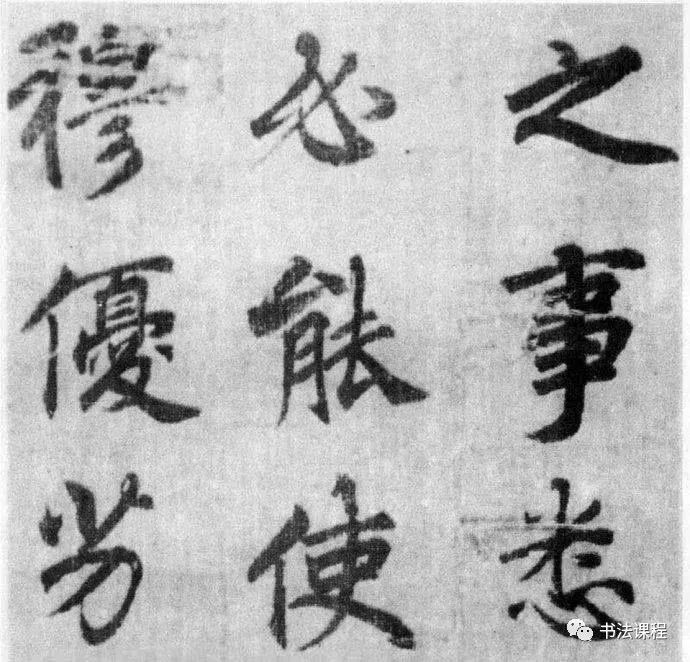 之事悉
必能使
穆優劣
书法课程